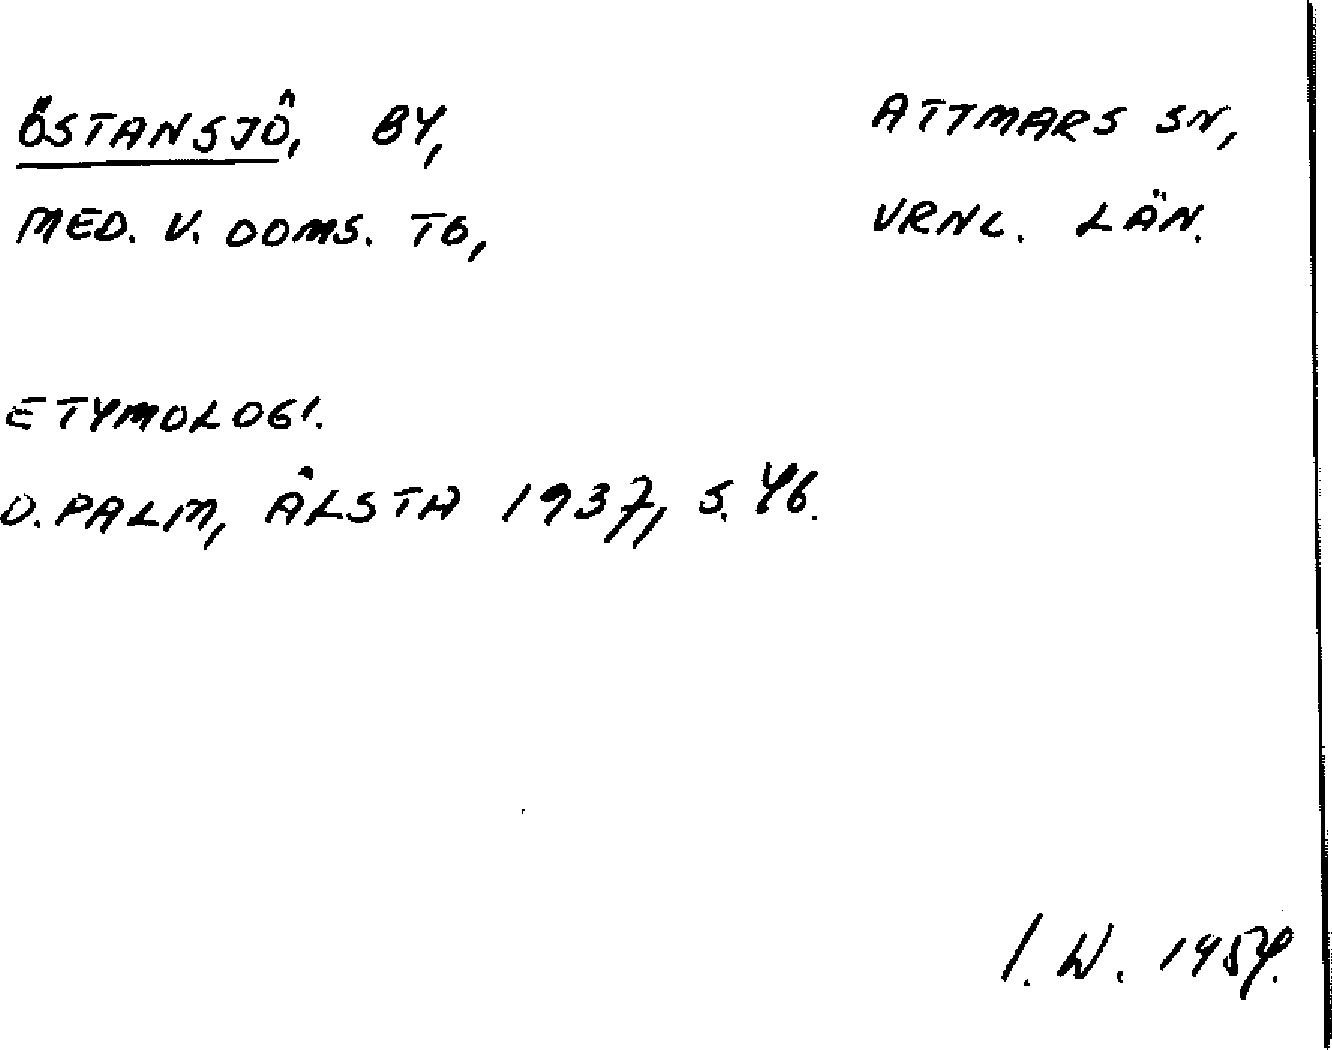 ÖSTANSJÖ, BY, ATTMARS SN,
MED. V. DOMS. TG, VRNL. LÄN.
ETYMOLOGI.
D. PALM, ÅLSTA 1937, S. 46.
I. W. 1954.